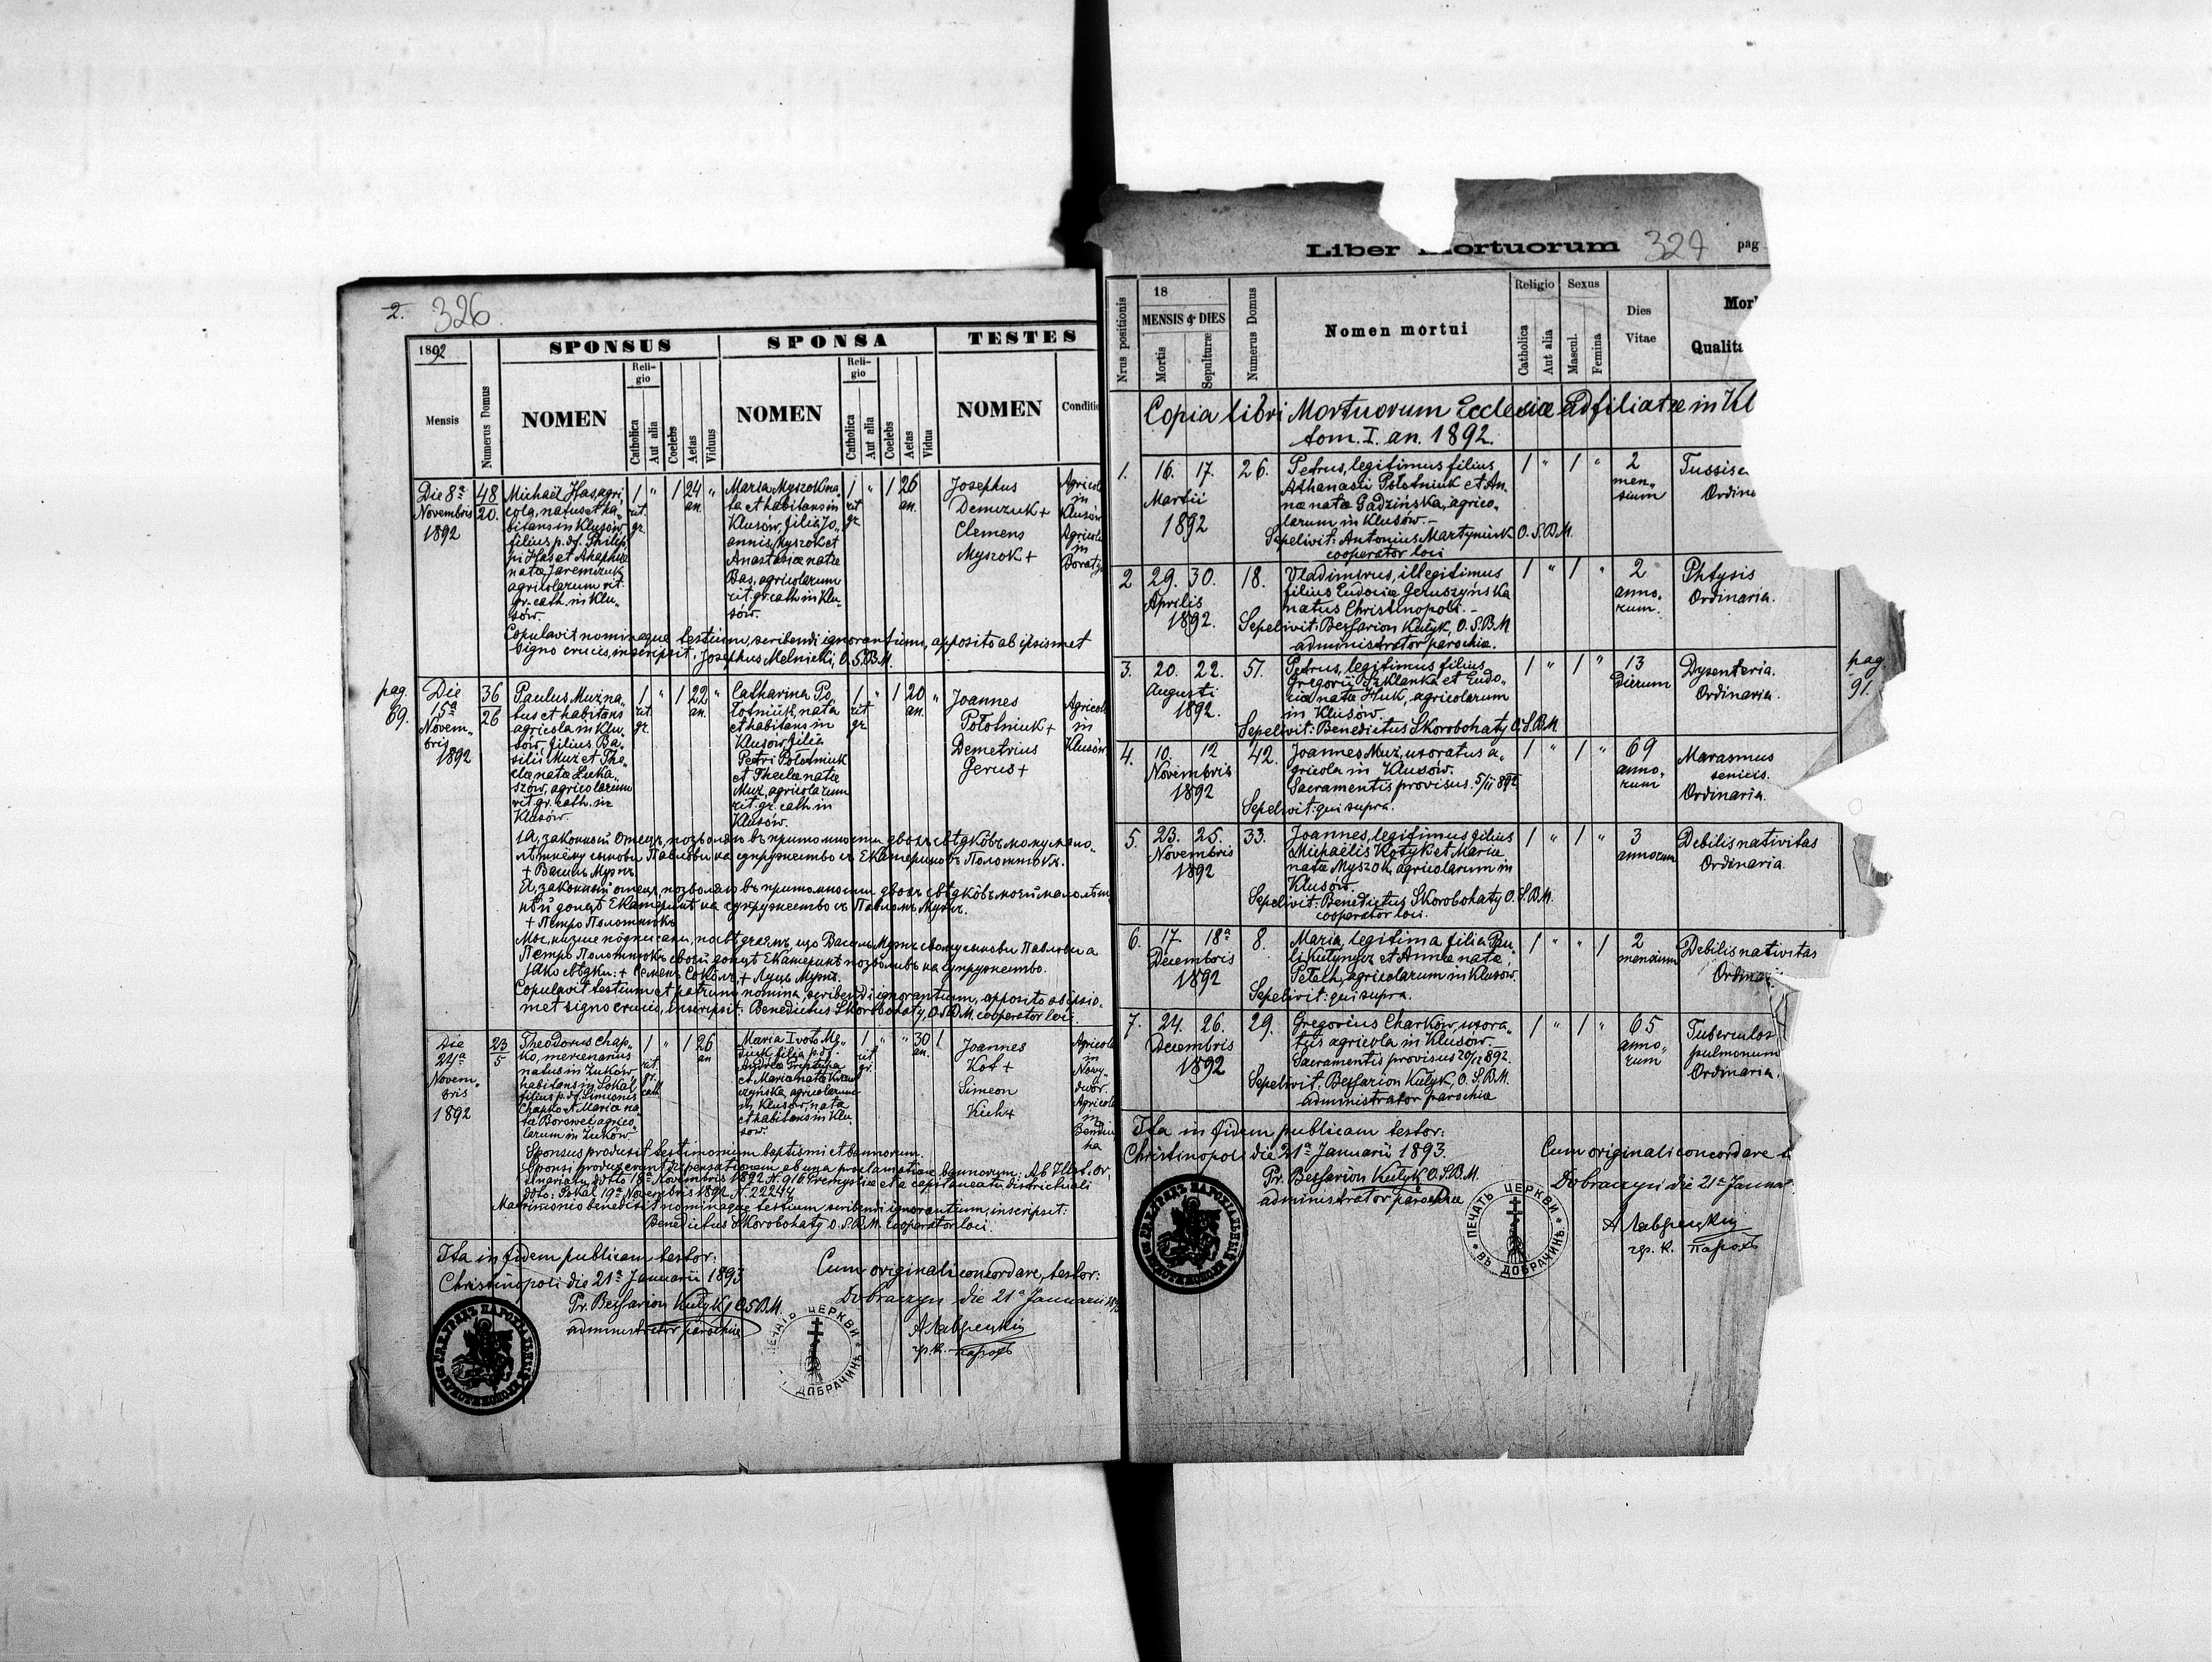 2. 326
1892
SPONSUS
SPONSA
TESTES
Mensis
Numerus Domus
NOMEN
Reli-
gio
Catholica
Aut alia
Coelebs
Aetas
Viduus
NOMEN
Reli-
gio
Catholica
Aut alia
Coelebs
Aetas
Vidua
NOMEN
Conditio
Die 8ª
Novembris
1892
48
20.
Michaël Has, agri-
cola, natus et ha-
bitans in Klusów
filius p. df. Philip-
pi Has et Ahaphiae
natae Jaremczuk
agricolarum rit.
gr. cath. in Klu-
sów.
1 rit. gr. " 1 24 an. "
Maria Myszok na-
ta et habitans in
Klusów, filia Jo-
annis Myszok et
Anastasiae natae
Bas, agricolarum
rit. gr. cath. in Klu-
sów.
1 rit. gr. " 1 26 an.
Josephus
Demczuk +
Clemens
Myszok +
Agricola
in
Klusów
Agricola
in
Boraty
Copulavit nominaque testium, scribendi ignorantium, apposito ab ipsismet
signo crucis, inscripsit: Josephus Melnicki, O. S. B. M.
pag.
69.
Die
15ª
Novem-
bris
1892
36
26
Paulus Muz, na-
tus et habitans
agricola in Klu-
sów, filius Ba-
silii Muz et The-
clae natae Łuka-
szów, agricolarum
rit. gr. cath. in
Klusów.
1 rit. gr. " 1 22 an. "
Catharina Po-
łotniuk, nata
et habitans in
Klusów, filia
Petri Połotniuk
et Theclae natae
Muz, agricolarum
rit. gr. cath. in
Klusów.
1 rit. gr. " 1 20 an. "
Joannes
Połotniuk +
Demetrius
Gerus +
Agricola
in
Klusów
Я, законный отецъ, позволяю въ притомности двохъ свѣдкôвъ мому мало-
лѣтнему сынови Павлови на супружество съ Екатериновъ Полотнюкъ.
+ Василь Музъ
Я, законный отецъ, позволяю въ притомности двохъ свѣдкôвъ моїй малолѣт-
нѣй доцѣ Екатеринѣ на супружество съ Павломъ Музъ.
+ Петро Полотнюкъ
Мы, низше подписани, посвѣдчаемъ, що Василь Музъ свому сынови Павлови а
Петро Полотнюкъ своїй доцѣ Екатеринѣ позволивъ на супружество.
Яко свѣдки: + Семенъ Соколъ, + Луць Музъ.
Copulavit testium et patrum nomina, scribendi ignorantium, apposito ab ipsis-
met signo crucis, inscripsit: Benedictus Skorobohaty, O. S. B. M. cooperator loci.
Die
24ª
Novem-
bris
1892
23
5
Theodorus Chap-
ko, mercenarius
natus in Żuków
habitans in Sokal
filius p. df. Simionis
Chapko et Maria na-
tae Borowei agrico-
larum in Żuków.
1 rit. gr. cath " 1 26 an
Maria I voto Me-
diuk, filia p. df.
Andreae Preptupa
et Maria nata Kraw-
czyńska, agricolarum
in Klusów, nata
et habitans in Klu-
sów.
1 rit. gr. " " 30 an. 1
Joannes
Kot +
Simeon
Kich +
Agricola
in
Nowy-
dwór
Agricola
in
Bendiu
ha
Sponsus produxit testimonium baptismi et bannorum.
Sponsi produxerunt dispensationem ab una proclamatione bannorum: Ab Illust. or-
dinariatu, ddto 18ª Novembris 1892 N. 916 Premysliae et a capitaneatu districtuali
ddto: Sokal 19ª Novembris 1892 N. 22244
Matrimonio benedixit nominaque testium scribendi ignorantium, inscripsit:
Benedictus Skorobohaty O. S. B. M. Cooperator loci.
Ita in fidem publicam testor:
Christinopoli die 21ª Januarii 1893
Pr. Bessarion Kułyk, O. S. B. M.
administrator parochiae
Cum originali concordare, testor:
Dobraczyn die 21ª Januarii 1893
А Лаврецкій
гр. к. парохъ
ПЕЧАТЬ ЦЕРКВИ ВЪ ДОБРАЧИНѢ
Liber Mortuorum 327 pag
Nrus positionis
18
MENSIS & DIES
Mortis
Sepulturae
Numerus Domus
Nomen mortui
Religio
Catholica
Aut alia
Sexus
Mascul.
Femina
Dies
Vitae
Mor
Qualita
Copia libri Mortuorum Ecclesiae adfiliatae in Kl
tom. I. an. 1892.
1. 16. 17.
Martii
1892
26.
Petrus, legitimus filius
Athanasii Połotniuk et An-
nae nata Gadzińska, agrico-
larum in Klusów. -
Sepelivit: Antonius Martyniuk O. S. B. M.
cooperator loci
1 " 1 "
2
men-
sium
Tussis c
Ordina
2 29. 30.
Aprilis
1892.
18.
Vladimirus, illegitimus
filius Eudociae Geruszyńska
natus Christinopoli. -
Sepelivit: Bessarion Kułyk, O. S. B. M
administrator parochiae.
1 " 1 "
2
anno-
rum.
Phtysis
Ordinaria.
3. 20. 22.
Augusti
1892.
51.
Petrus, legitimus filius
Gregorii Szklanka et Eudo-
cia nata Huk, agricolarum
in Klusów.
Sepelivit: Benedictus Skorobohaty O. S. B. M
1 " 1 "
13
dierum
Dysenteria.
Ordinaria.
pag.
91.
4. 10. 12
Novembris
1892
42.
Joannes Muz, uxoratus a-
gricola in Klusów.
Sacramentis provisus. 5/11 892
Sepelivit: qui supra.
1 " 1 "
69
anno-
rum
Marasmus
senilis.
Ordinaria.
5. 23. 25.
Novembris
1892
33.
Joannes, legitimus filius
Michaëlis Kotyk et Maria
nata Myszok, agricolarum in
Klusów.
Sepelivit: Benedictus Skorobohaty O. S. B. M.
cooperator loci.
1 " 1 "
3
annorum
Debilis nativitas
Ordinaria.
6. 17. 18ª
Decembris
1892
8.
Maria, legitima filia Pau-
li Kułynycz et Annae nata
Petech, agricolarum in Klusów.
Sepelivit: qui supra.
1 " " 1
2
mensium
Debilis nativitas
Ordina
7. 24. 26.
Decembris
1892
29.
Gregorius Charków, uxora-
tus agricola in Klusów. -
Sacramentis provisus 20/12 892.
Sepelivit: Bessarion Kułyk, O. S. B. M.
administrator parochiae
1 " 1 "
65
anno-
rum
Tuberculos
pulmonum
Ordinaria.
Ita in fidem publicam testor:
Christinopoli die 21ª Januarii 1893.
Pr. Bessarion Kułyk O. S. B. M.
administrator parochiae
Cum originali concordare t
Dobraczyn die 21ª Januar
А Лаврецкій
гр. к. парохъ
ПЕЧАТЬ ЦЕРКВИ ВЪ ДОБРАЧИНѢ